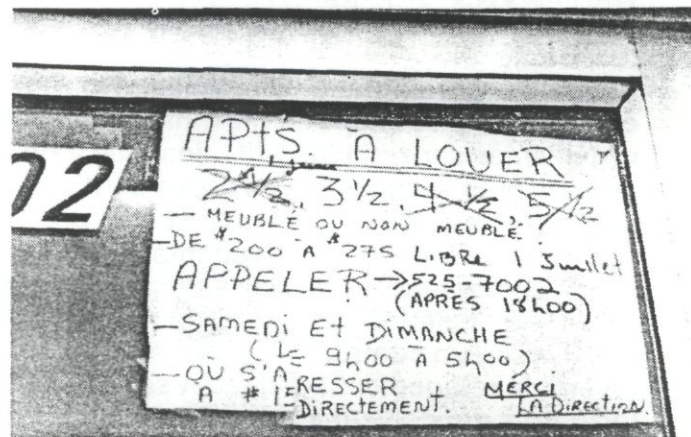 02
APtS. À LOUER
2 1/2, 3 1/2, 4 1/2, 5 1/2
— MEUBLÉ OU NON MEUBLÉ.
— DE $200 À $275 LIBRE 1 Juillet
APPELER → 525-7002
(APRÈS 18h00)
— SAMEDI Et DIMANCHE
9h00 À 5h00)
— OÙ S'A RESSER
À # 1 DIRECTEMENT.
MERCI
LA DIRECTION.